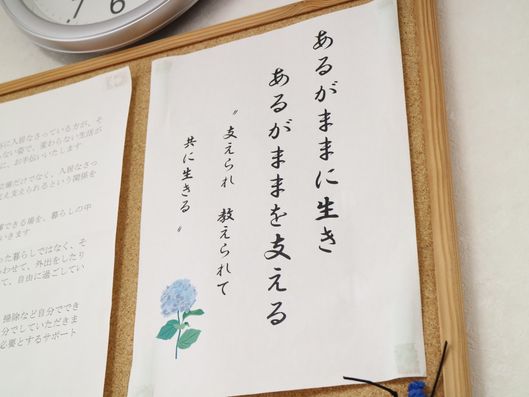 あるがままに生き
あるがままを支える
〝支えられ 教えられて
共に生きる〟
に入居なさっている方が、そ
ない姿で、変わらない生活が
に、お手伝いいたします
に癒だけでなく、入居なさっ
支え支えられるという関係を
できる場を、暮らしの中
いきます
った暮らしではなく、そ
わせて、外出をしたり
て、自由に過ごしてい
掃除など自分ででき
分でしていただきま
必要とするサポート
6